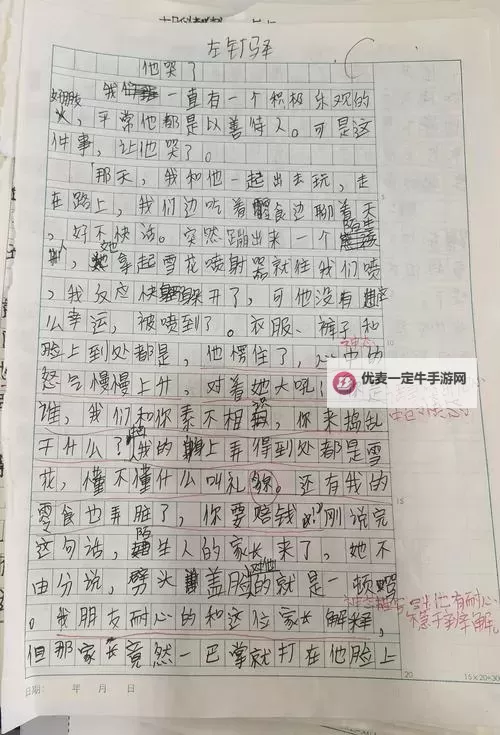 左钉驿
他哭了
我 一直有一个积极乐观的
好朋友，平常他都是以善待人。可是这
件事，让他哭了。
那天，我和他一起出去玩，走
在路上，我们边吃着零食边聊着天
，好不快活。突然蹦出来一个陌生
人，她拿起雪花喷射器就往我们喷
，我反应快 躲开了，可他没有这
么幸运，被喷到了。衣服、裤子和
脸上到处都是，他愣住了，心中的
怒气慢慢上升，对着她大吼：
谁，我们和你素不相 ，你来捣乱
干什么？我的 上弄得到处都是雪
花，懂不懂什么叫礼貌。还有我的
零食也弄脏了，你要赔钱！”刚说完
这句话，陌生人的家长来了，她不
由分说，劈头盖脸的就是一顿
。我朋友耐心的和这位家长解释，
但那家长竟然一巴掌就打在他脸上
神态
他有耐心
不急于 解。
优麦一定牛手游网
10
15
20
15×20=300
日期： 年 月 日